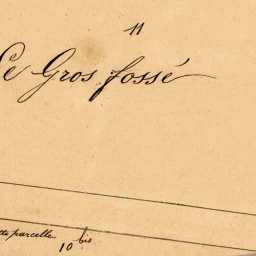 11
Le Gros fossé
parcelle 10 bis